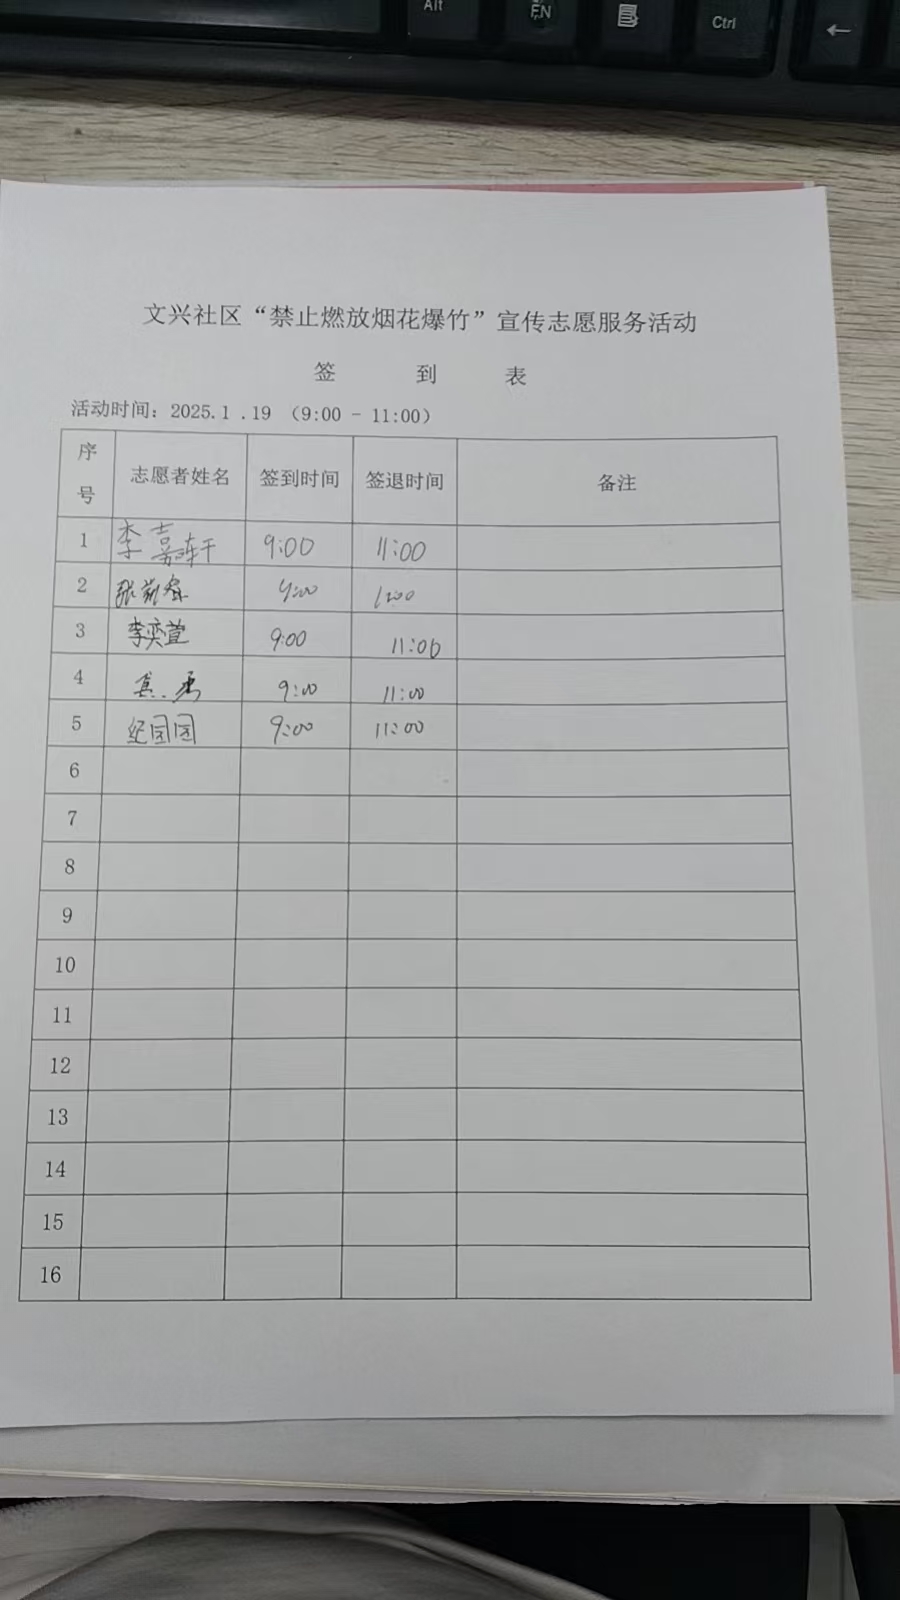 Alt EN Ctrl ←
文兴社区“禁止燃放烟花爆竹”宣传志愿服务活动
签 到 表
活动时间：2025.1 .19 （9:00 - 11:00）
序号 志愿者姓名 签到时间 签退时间 备注
1 李嘉轩 9:00 11:00
2 9:00 11:00
3 李奕萱 9:00 11:00
4 9:00 11:00
5 纪园园 9:00 11:00
6
7
8
9
10
11
12
13
14
15
16